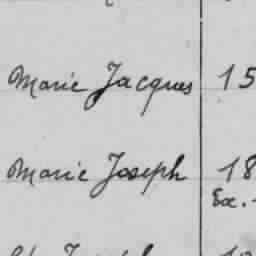 Marie Jacques 15
Marie Joseph 18
Ex.